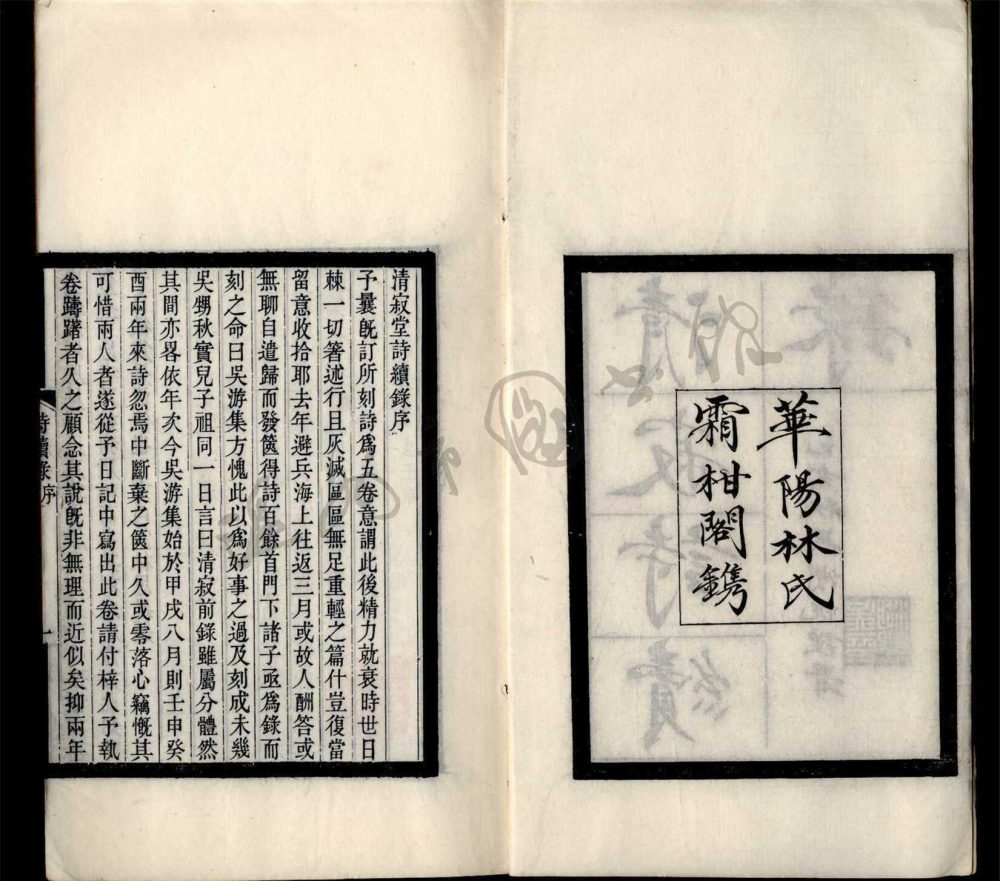 華陽林氏
霜柑閣鐫
清寂堂詩續錄序
予曩旣訂所刻詩爲五卷意謂此後精力就衰時世日
棘一切箸述行且灰滅區區無足重輕之篇什豈復當
留意收拾耶去年避兵海上往返三月或故人酬答或
無聊自遣歸而發篋得詩百餘首門下諸子亟爲錄而
刻之命曰吳游集方愧此以爲好事之過及刻成未幾
吳甥秋實兒子祖同一日言曰清寂前錄雖屬分體然
其間亦畧依年次今吳游集始於甲戌八月則壬申癸
酉兩年來詩忽焉中斷棄之篋中久或零落心竊慨其
可惜兩人者遂從予日記中寫出此卷請付梓人予執
卷躊躇者久之顧念其說旣非無理而近似矣抑兩年
詩續錄序
一